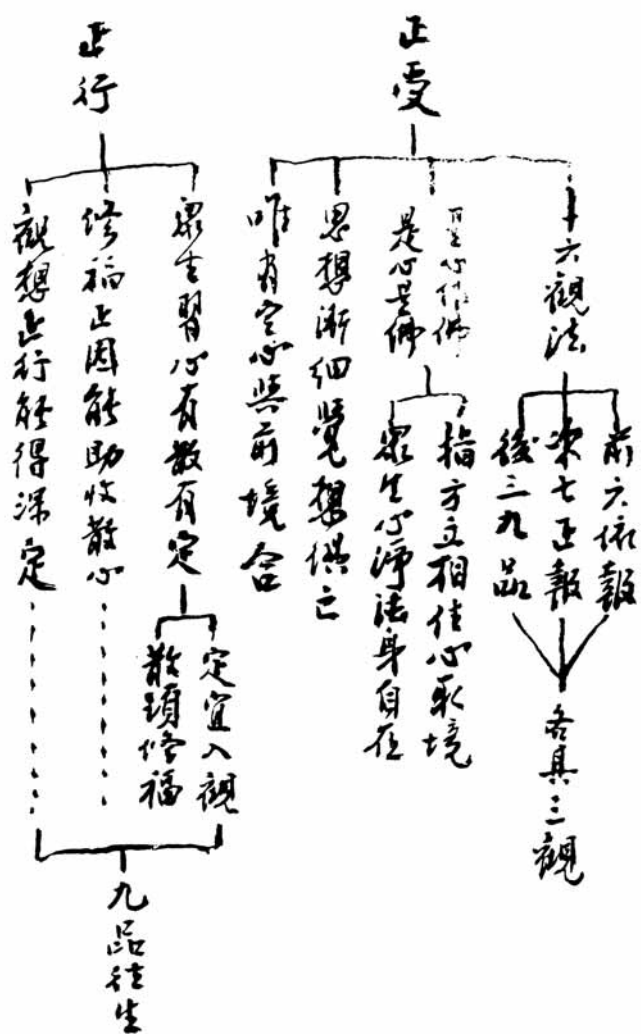 正受
六觀法
前六依報
次七正報
後三九品
各具三觀
是心作佛
是心是佛
指方立相住心取境
眾生心淨法身自在
思想漸細覺想俱亡
唯有定心與前境合
正行
眾生習心有散有定
定宜入觀
散須修福
修福正因能助收散心
觀想正行能得深定
九品往生